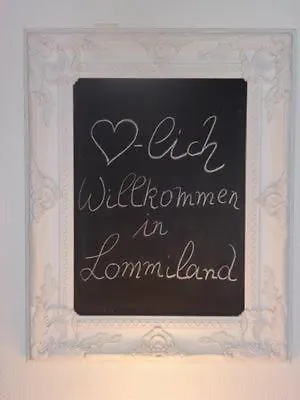 ♡-lich
Willkommen
in
Lommiland